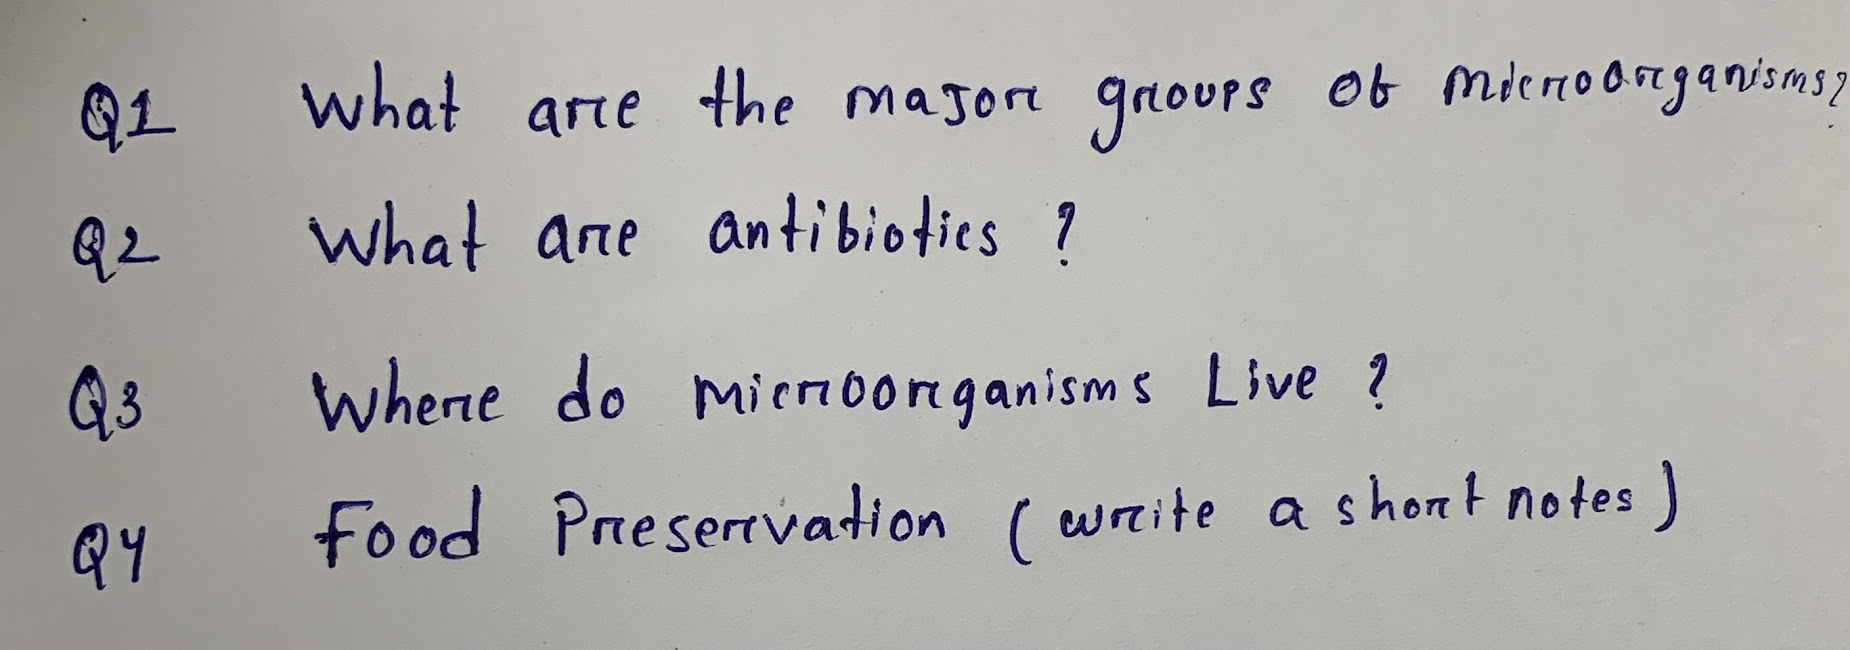 Q1 What are the major groups of microorganisms?
Q2 What are antibiotics ?
Q3 Where do microorganisms Live ?
Q4 Food Preservation ( write a short notes )